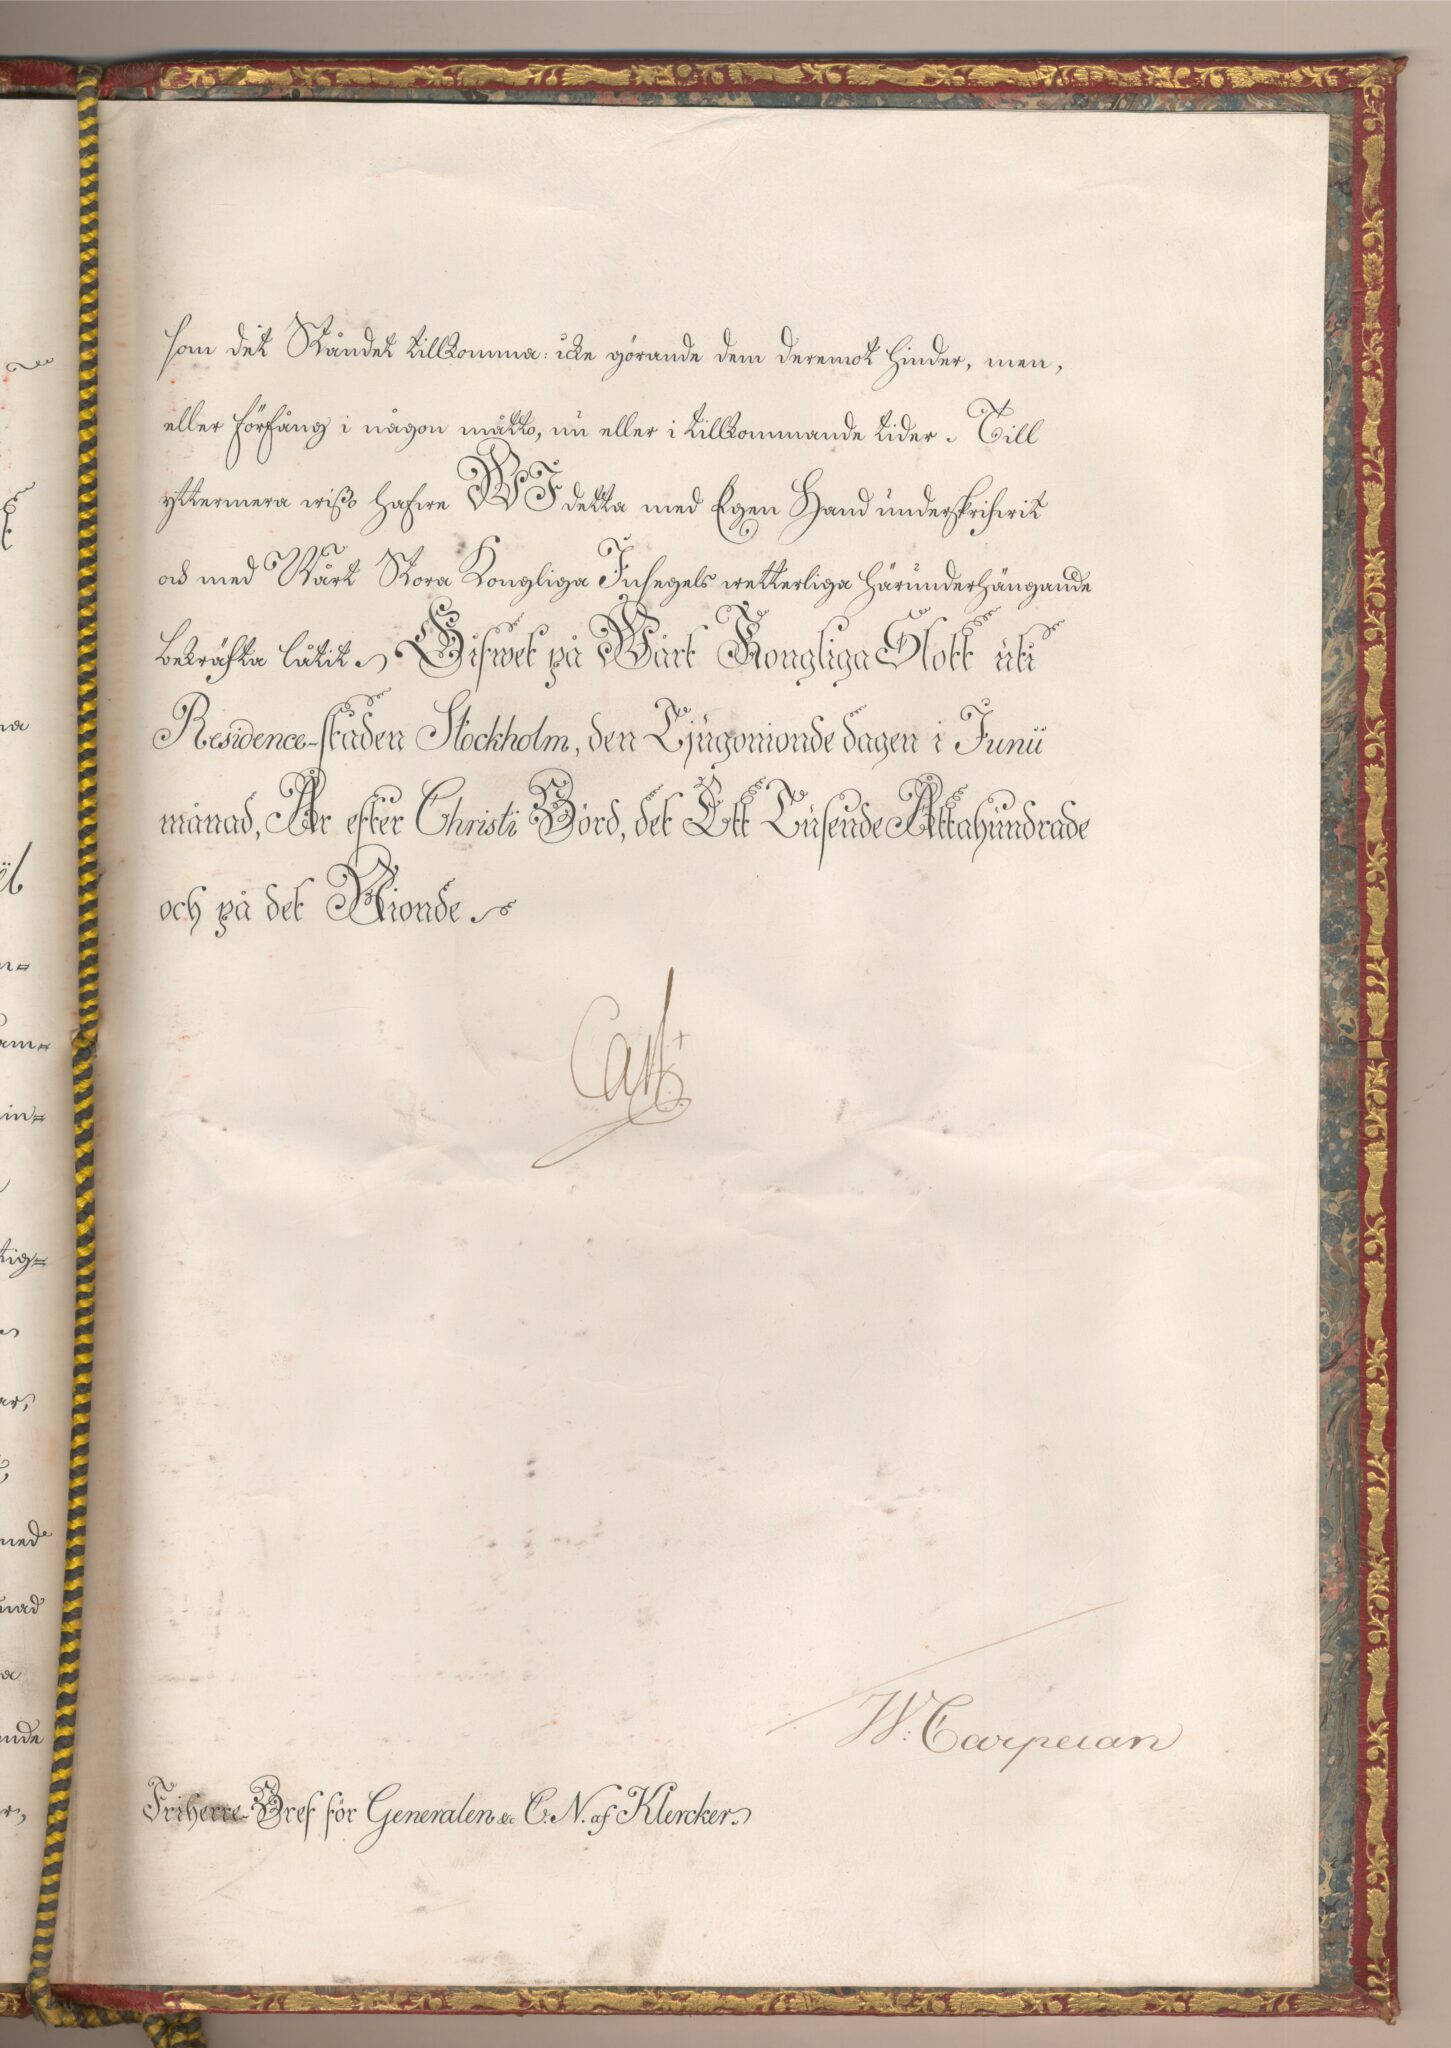 som det Ståndet tillkomma: icke görande dem deremot hinder, men,
eller förfång i någon måtto, nu eller i tillkommande tider. Till
yttermera wisso hafwe WI detta med Egen Hand underskrifwit
och med Wårt Stora Kongliga Insegels wetterliga härunderhängande
bekräfta låtit. Gifwet på Wårt Kongliga Slott uti
Residence-staden Stockholm, den Tjugonionde dagen i Junii
månad, År efter Christi Börd, det Ett Tusende Attahundrade
och på det Nionde.
Carl
W: Carpelan
Friherre-Bref för Generalen &c C. N. af Klercker.